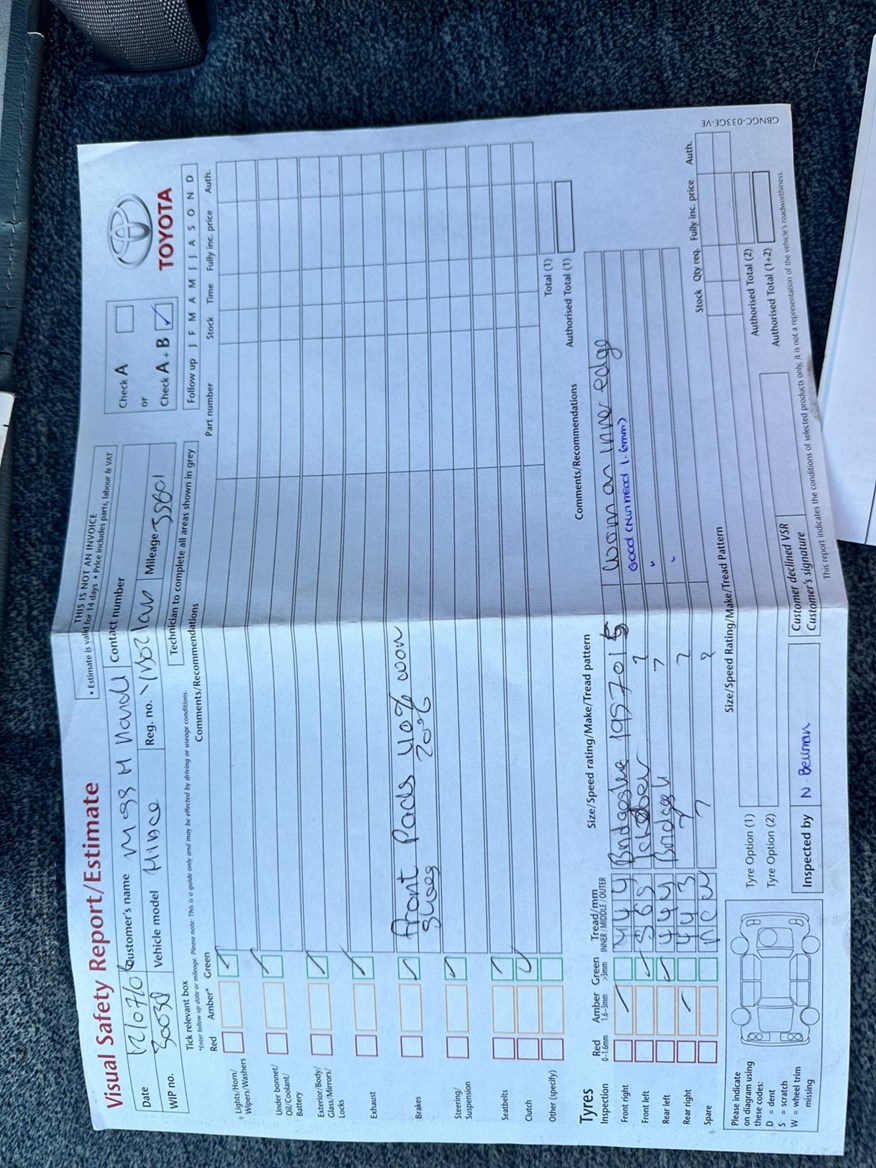 Visual Safety Report/Estimate
THIS IS NOT AN INVOICE
• Estimate is valid for 14 days • Price includes parts, labour & VAT
Check A
or
Check A + B ✓
TOYOTA
Date 12/07/0
Customer's name
Contact number
WIP no.
Vehicle model Hiace
Reg. no.
Mileage 35801
Follow up J F M A M J J A S O N D
Tick relevant box
*Enter follow up date or mileage. Please note: This is a guide only and may be effected by driving or useage conditions.
Technician to complete all areas shown in grey
Red Amber* Green Comments/Recommendations Part number Stock Time Fully inc. price Auth.
Lights/Horn/
Wipers/Washers ✓
Under bonnet/
Oil/Coolant/
Battery ✓
Exterior/Body/
Glass/Mirrors/
Locks ✓
Exhaust ✓
Brakes ✓ Front Pads 40% worn
Shoes 20%
Steering/
Suspension ✓
Seatbelts ✓
Clutch ✓
Other (specify)
Total (1)
Authorised Total (1)
Tyres
Inspection
Red
0-1.6mm
Amber
1.6-3mm
Green
>3mm
Tread/mm
INNER/MIDDLE/OUTER
Size/Speed rating/Make/Tread pattern
Comments/Recommendations
Front right ✓ 4 4 4 1957015 worn on inner edge
Front left ✓ 5 6 5 Good (Nunmead 1.6mm)
Rear left ✓ 4 4 4
Rear right ✓ 4 4 3
Spare
Stock Qty req. Fully inc. price Auth.
Please indicate
on diagram using
these codes:
D = dent
S = scratch
W = wheel trim
missing
Size/Speed Rating/Make/Tread Pattern
Tyre Option (1)
Tyre Option (2)
Authorised Total (2)
Authorised Total (1+2)
Inspected by N Bellman
Customer declined VSR
Customer's signature
This report indicates the conditions of selected products only, it is not a representation of the vehicle's roadworthiness.
GBNGC-033GE-VE